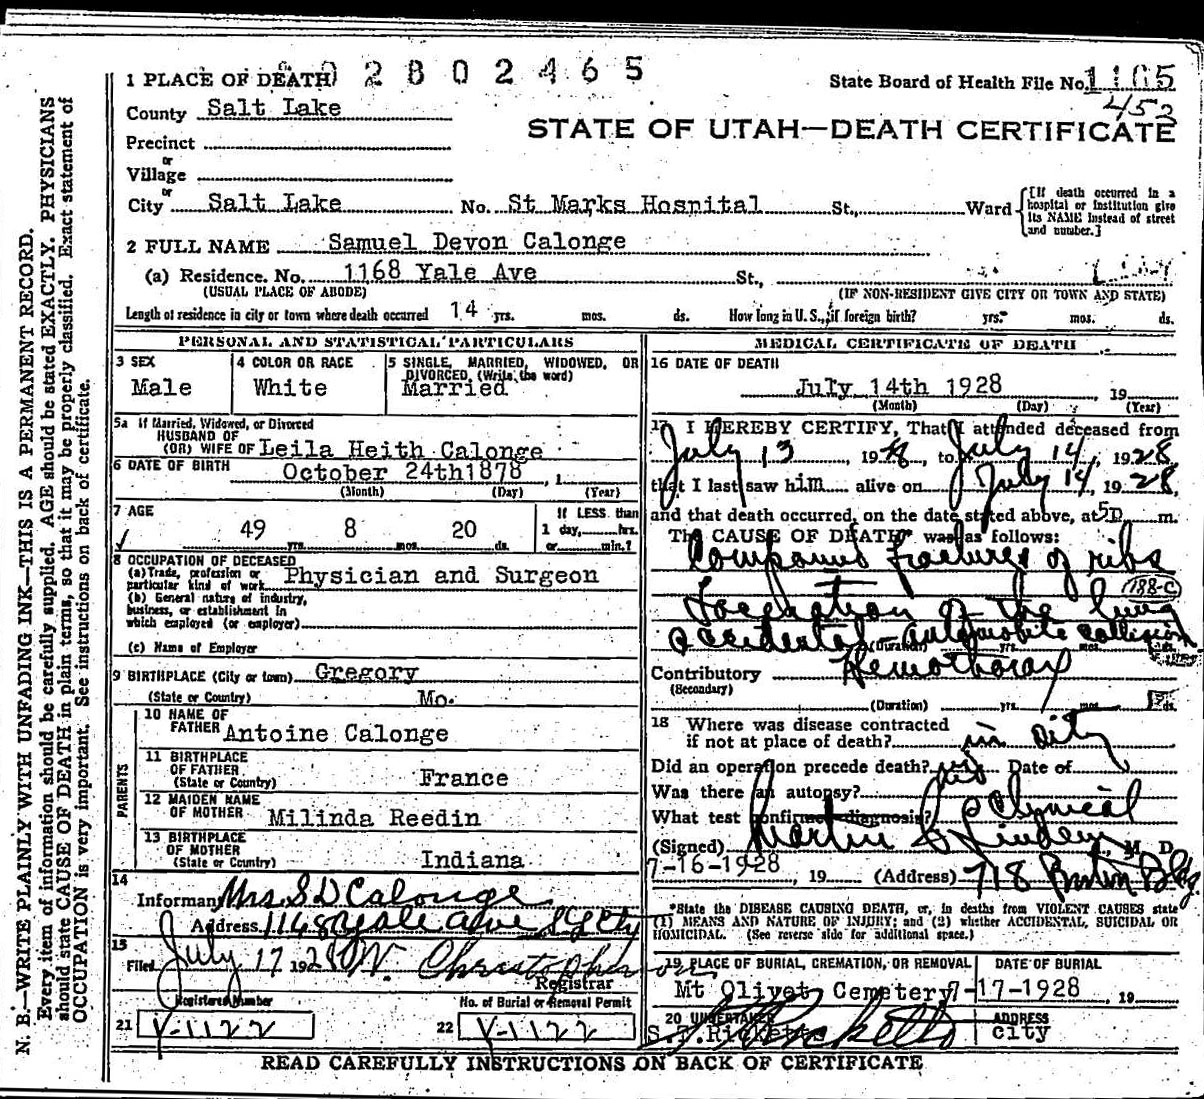 1 PLACE OF DEATH 02802465
State Board of Health File No. 1165
County Salt Lake
452
STATE OF UTAH—DEATH CERTIFICATE
Precinct
or
Village
or
City Salt Lake No. St Marks Hospital St., Ward {[If death occurred in a hospital or institution give its NAME instead of street and number.]
2 FULL NAME Samuel Devon Calonge
(a) Residence. No. 1168 Yale Ave St.,
(USUAL PLACE OF ABODE) (IF NON-RESIDENT GIVE CITY OR TOWN AND STATE)
Length of residence in city or town where death occurred 14 yrs. mos. ds. How long in U. S., if foreign birth? yrs. mos. ds.
PERSONAL AND STATISTICAL PARTICULARS
3 SEX 4 COLOR OR RACE 5 SINGLE, MARRIED, WIDOWED, OR
DIVORCED (Write the word)
Male White Married
5a If Married, Widowed, or Divorced
HUSBAND OF
(OR) WIFE OF Leila Heith Calonge
6 DATE OF BIRTH October 24th1878, 1
(Month) (Day) (Year)
7 AGE If LESS than
49 8 20 1 day, hrs.
yrs. mos. ds. or min.?
8 OCCUPATION OF DECEASED
(a) Trade, profession or
particular kind of work Physician and Surgeon
(b) General nature of industry,
business, or establishment in
which employed (or employer)
(c) Name of Employer
9 BIRTHPLACE (City or town) Gregory
(State or Country) Mo.
PARENTS
10 NAME OF
FATHER Antoine Calonge
11 BIRTHPLACE
OF FATHER
(State or Country) France
12 MAIDEN NAME
OF MOTHER Milinda Reedin
13 BIRTHPLACE
OF MOTHER
(State or Country) Indiana
14
Informant Mrs. S D Calonge
Address 1168 Yale Ave S L City
15
Filed July 17 1928 W. Christopherson
Registrar
Registered Number No. of Burial or Removal Permit
21 V-1122 22 V-1122
MEDICAL CERTIFICATE OF DEATH
16 DATE OF DEATH
July 14th 1928, 19
(Month) (Day) (Year)
17 I HEREBY CERTIFY, That I attended deceased from
July 13, 1928, to July 14, 1928
that I last saw him alive on July 14, 1928,
and that death occurred, on the date stated above, at 5p m.
The CAUSE OF DEATH* was as follows:
Compound fractures of ribs
188-C
of the lung
accidental - automobile collision
(Duration) yrs. mos. ds.
Contributory Hemothorax
(Secondary)
(Duration) yrs. mos. ds.
18 Where was disease contracted
if not at place of death? in city
Did an operation precede death? Date of
Was there an autopsy?
What test confirmed diagnosis? Clynical
(Signed) Martin C Lindem, M. D.
7-16-1928, 19 (Address) 718 Boston Bldg.
*State the DISEASE CAUSING DEATH, or, in deaths from VIOLENT CAUSES state
(1) MEANS AND NATURE OF INJURY; and (2) whether ACCIDENTAL, SUICIDAL OR
HOMICIDAL. (See reverse side for additional space.)
19 PLACE OF BURIAL, CREMATION, OR REMOVAL DATE OF BURIAL
Mt Olivet Cemetery 7-17-1928, 19
20 UNDERTAKER ADDRESS
S.T.Ricketts S. Ricketts city
READ CAREFULLY INSTRUCTIONS ON BACK OF CERTIFICATE
N. B.—WRITE PLAINLY WITH UNFADING INK—THIS IS A PERMANENT RECORD.
Every item of information should be carefully supplied. AGE should be stated EXACTLY. PHYSICIANS
should state CAUSE OF DEATH in plain terms, so that it may be properly classified. Exact statement of
OCCUPATION is very important. See instructions on back of certificate.